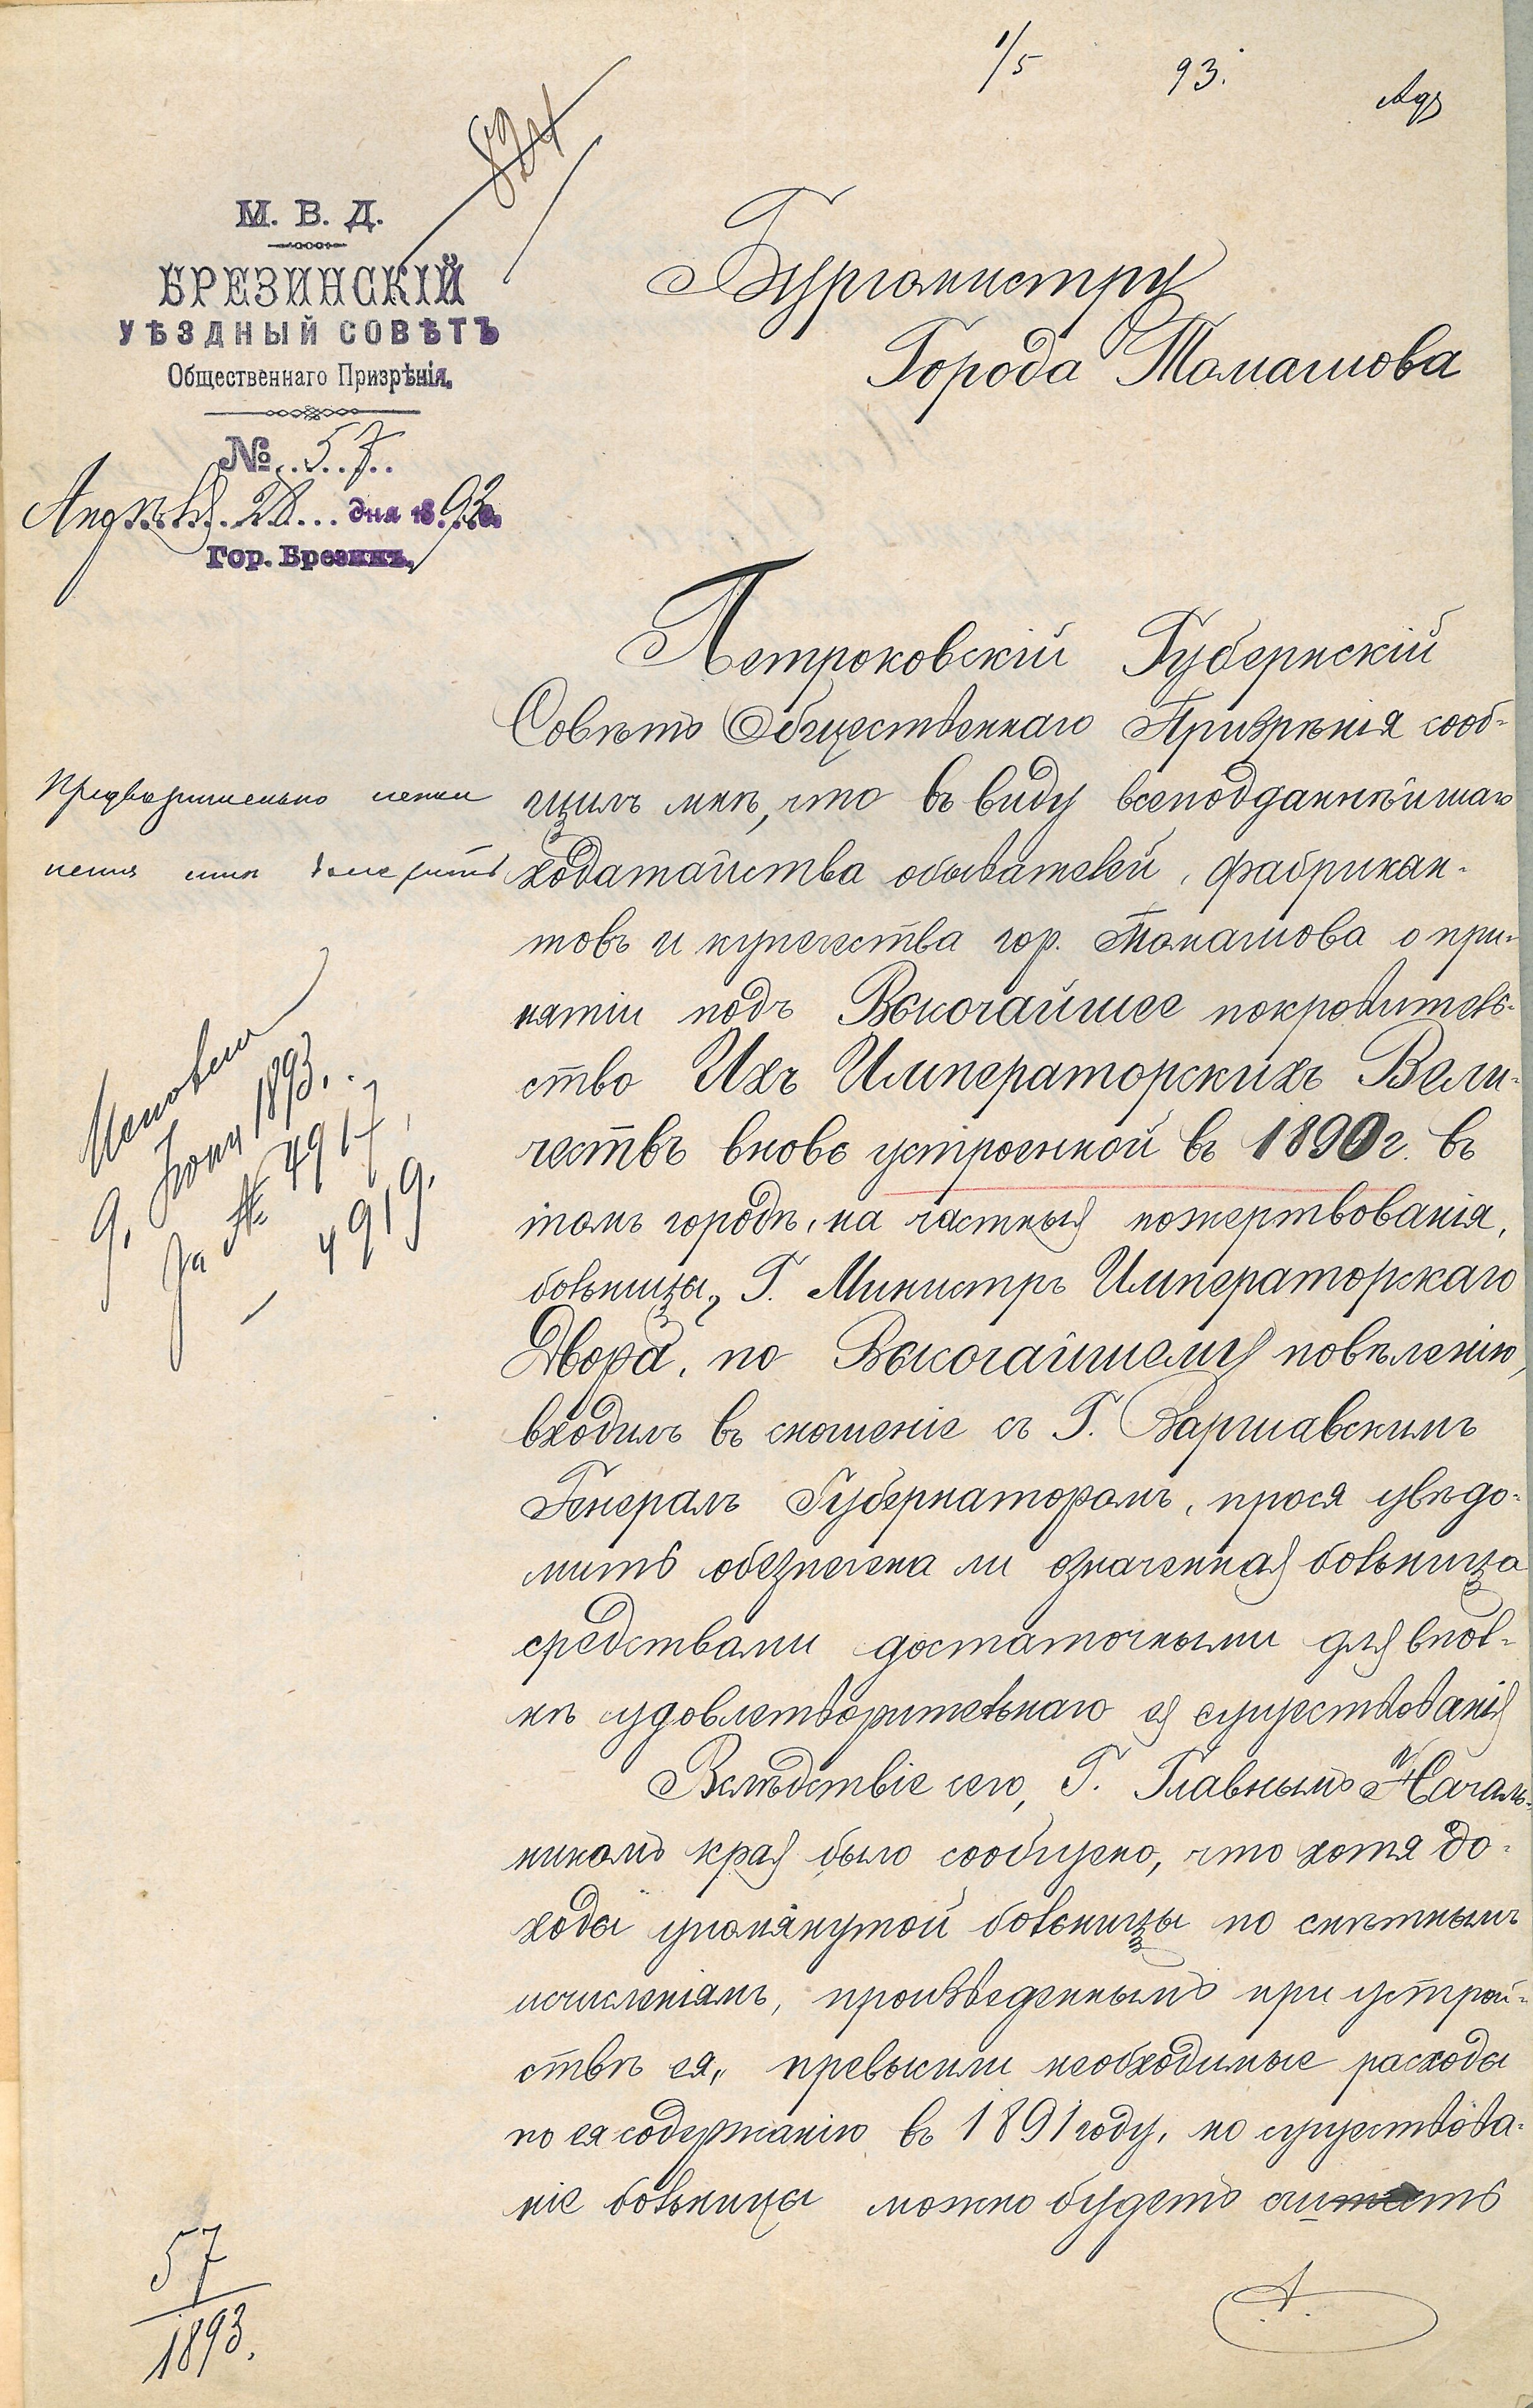 1/5 93.
824
М. В. Д.
БРЕЗИНСКІЙ
УѢЗДНЫЙ СОВѢТЪ
Общественнаго Призрѣнія.
№ 57
Апрѣля 28 дня 1893 г.
Гор. Брезины.
Бургомистру
Города Томашова
Петроковскій Губернскій
Совѣтъ Общественнаго Призрѣнія сооб-
щилъ мнѣ, что въ виду всеподданнѣйшаго
ходатайства обывателей, фабрикан-
товъ и купечества гор. Томашова о при-
нятіи подъ Высочайшее покровитель-
ство Ихъ Императорскихъ Вели-
чествъ вновь устроенной въ 1890 г. въ
томъ городѣ, на частныя пожертвованія,
больницы, Г. Министръ Императорскаго
Двора, по Высочайшему повѣленію,
входилъ въ сношеніе съ Г. Варшавскимъ
Генералъ Губернаторомъ, прося увѣдо-
мить обезпечена ли означенная больница
средствами достаточными для впол-
нѣ удовлетворительнаго ея существованія
Вслѣдствіе сего, Г. Главнымъ Началь-
никомъ края было сообщено, что хотя до-
ходы упомянутой больницы по смѣтнымъ
исчисленіямъ, произведеннымъ при устрой-
ствѣ ея, превысили необходимые расходы
по ея содержанію въ 1891 году, но существова-
ніе больницы можно будетъ считать
Предварительно
9. Іюня 1893.
За № 4917,
4919.
57
1893.